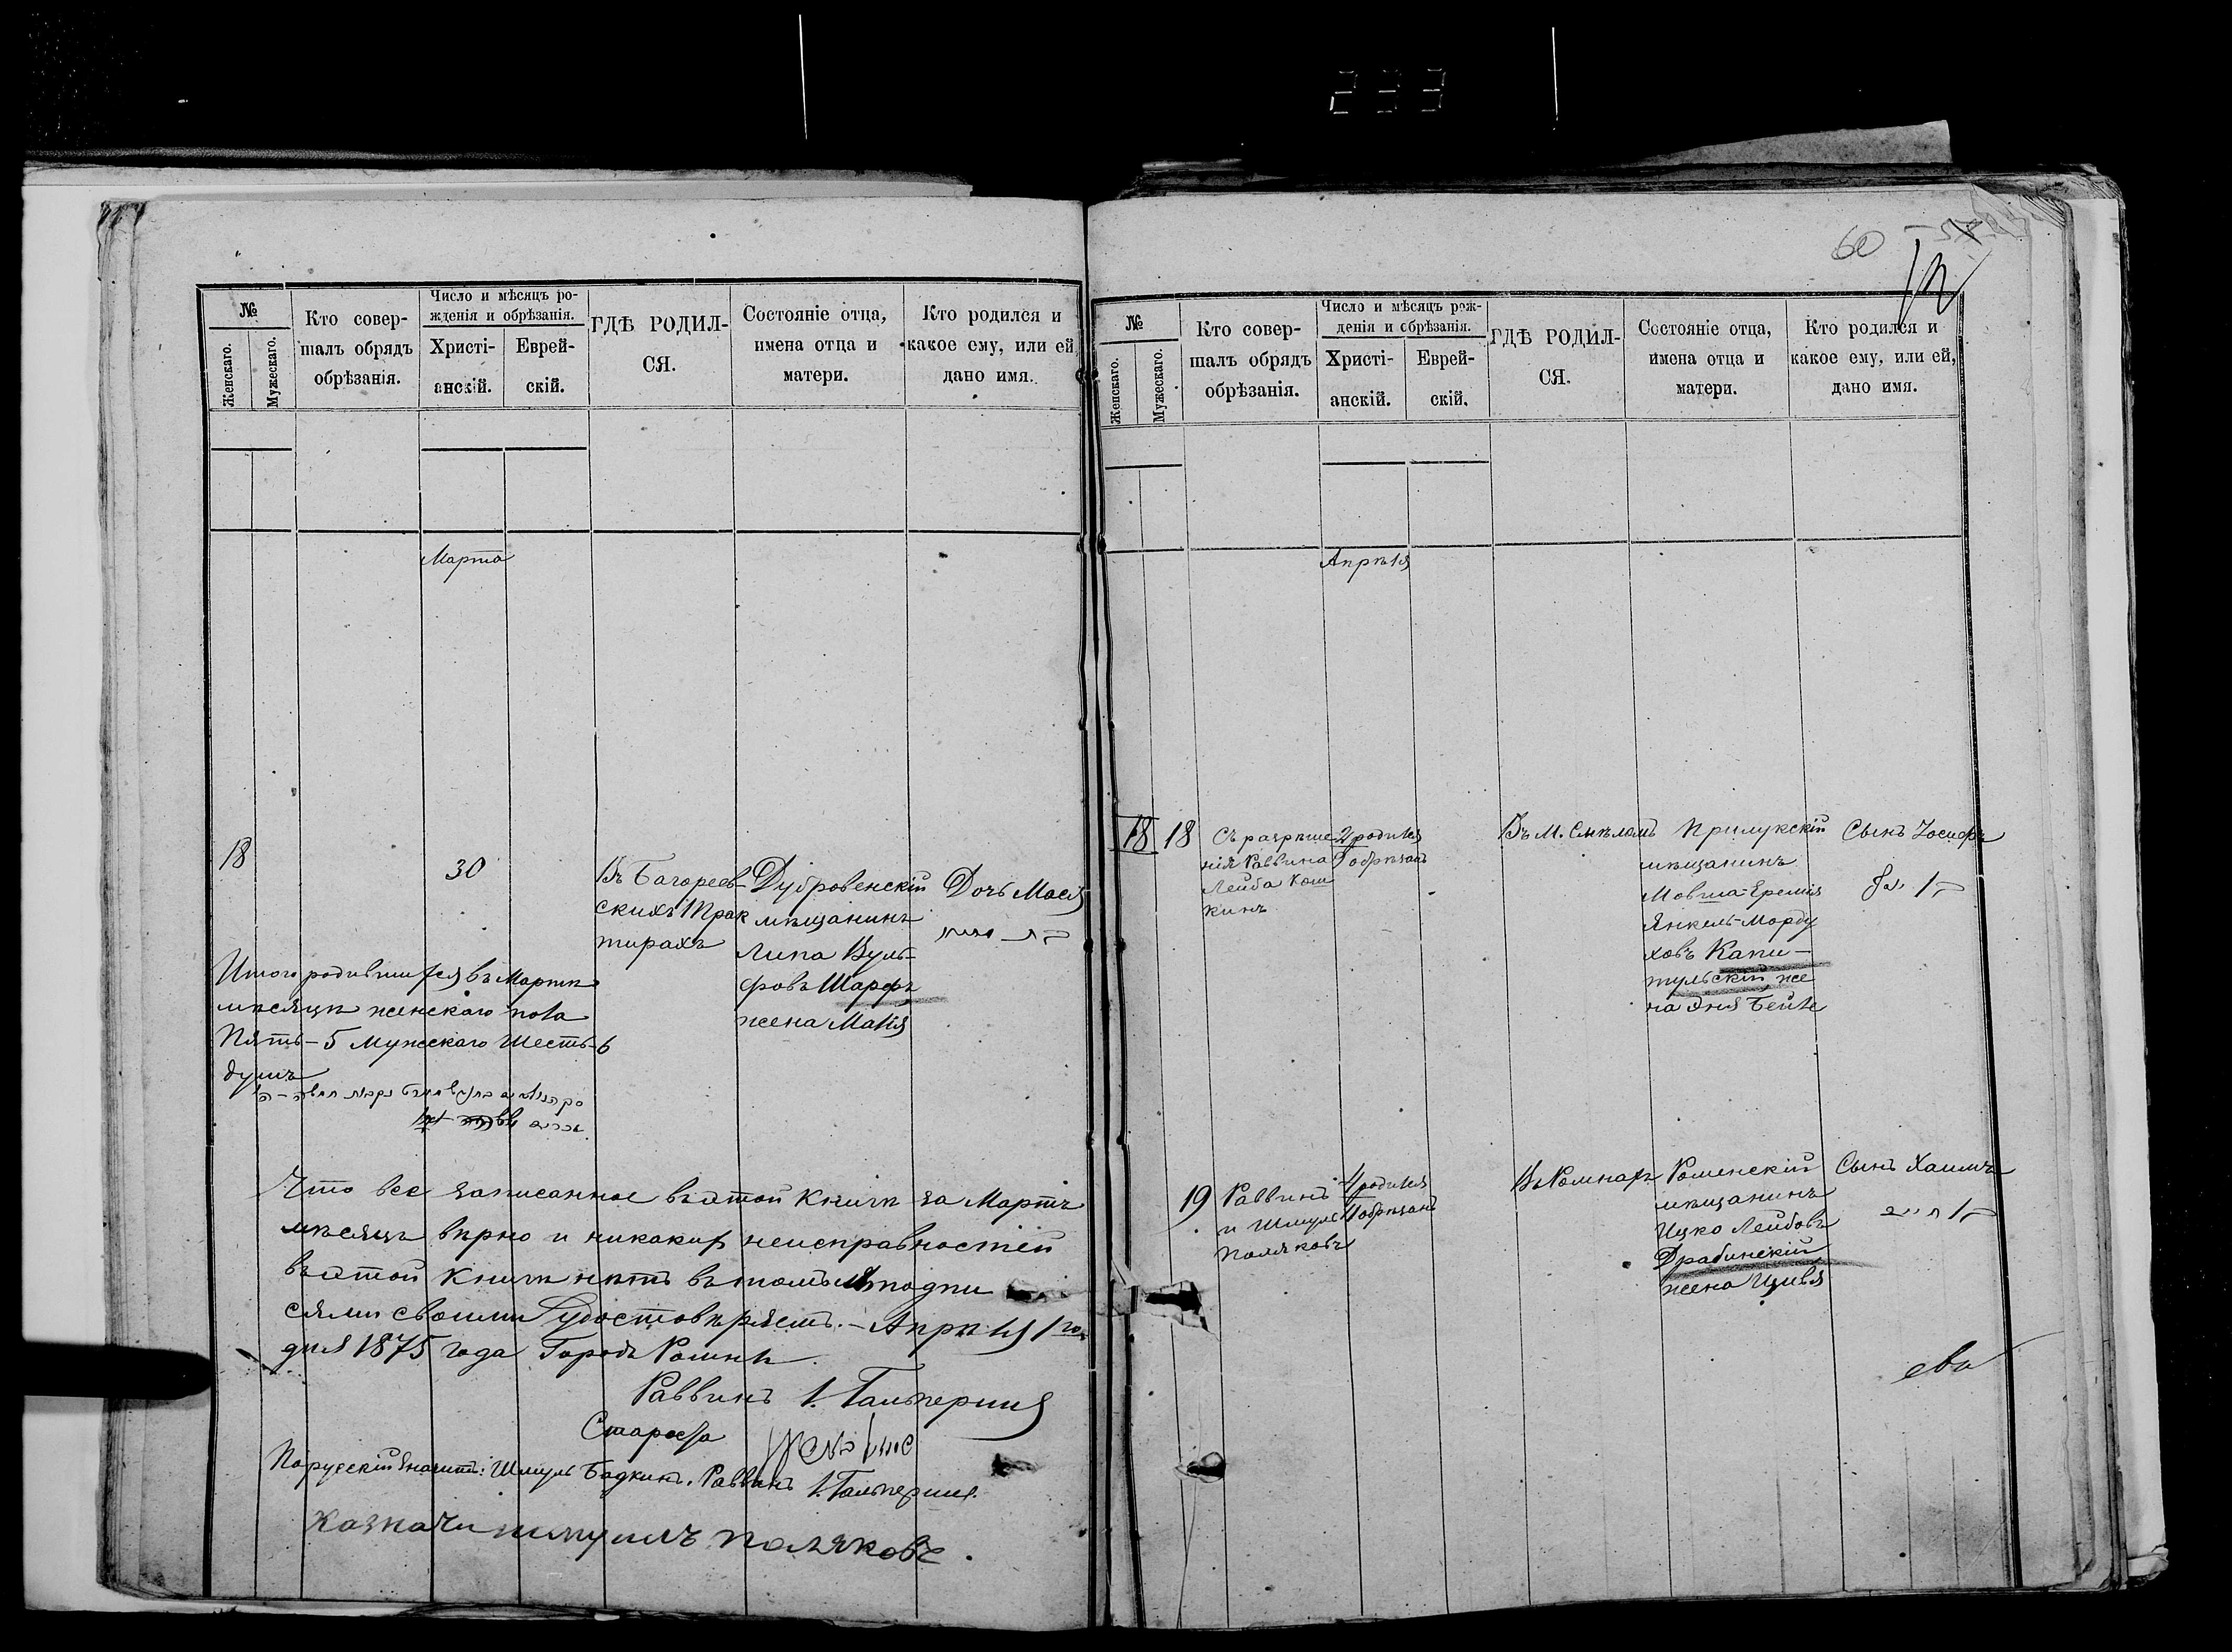 233
№
Женскаго.
Мужескаго.
Кто совер-
шалъ обрядъ
обрѣзанія.
Число и мѣсяцъ ро-
жденія и обрѣзанія.
Христі-
анскій.
Еврей-
скій.
ГДѢ РОДИЛ-
СЯ.
Состояніе отца,
имена отца и
матери.
Кто родился и
какое ему, или ей,
дано имя.
Марта
18
30
Въ Багореев-
скихъ Трак
тирахъ
Дубровенскій
мѣщанинъ
Липа Вуль-
фовъ Шарфъ
жена Маля
Дочь Мася
Итого родившихся въ Мартѣ
мѣсяцѣ женскаго пола
Пять-5 Мужескаго Шесть-6
душъ
Что все записанное въ этой книгѣ за Мартъ
мѣсяцъ вѣрно и никакихъ неисправностей
въ этой книгѣ нѣтъ въ томъ подпи
сями своими удостовѣряемъ.- Апрѣля 1го
дня 1875 года Городъ Ромны
Раввинъ І. Гальперинъ
Староста
По русски значитъ: Шмуль Бадкинъ. Раввинъ І. Гальперинъ.
Казначи шмуилъ Поляковъ.
60
№
Женскаго.
Мужескаго.
Кто совер-
шалъ обрядъ
обрѣзанія.
Число и мѣсяцъ рож-
денія и обрѣзанія.
Христі-
анскій.
Еврей-
скій.
ГДѢ РОДИЛ-
СЯ.
Состояніе отца,
имена отца и
матери.
Кто родился и
какое ему, или ей,
дано имя.
Апрѣля
18 18
Съ разрѣше
нія Раввина
Лейба Кош
кинъ
2 родился
9 обрѣзанъ
Въ М. Смѣломъ
Прилукскій
мѣщанинъ
Мовша-Еремія
Янкель-Морду
ховъ Капи-
тульскій, же
на Эня Бейле
Сынъ Іосифъ
19
Раввинъ
и Шмуль
Поляковъ
4 родился
11 обрѣзанъ
Въ Ромнахъ
Роменскій
мѣщанинъ
Ицко Лейбовъ
Драбинскій
жена Цивя
Сынъ Хаимъ
חיים
ева